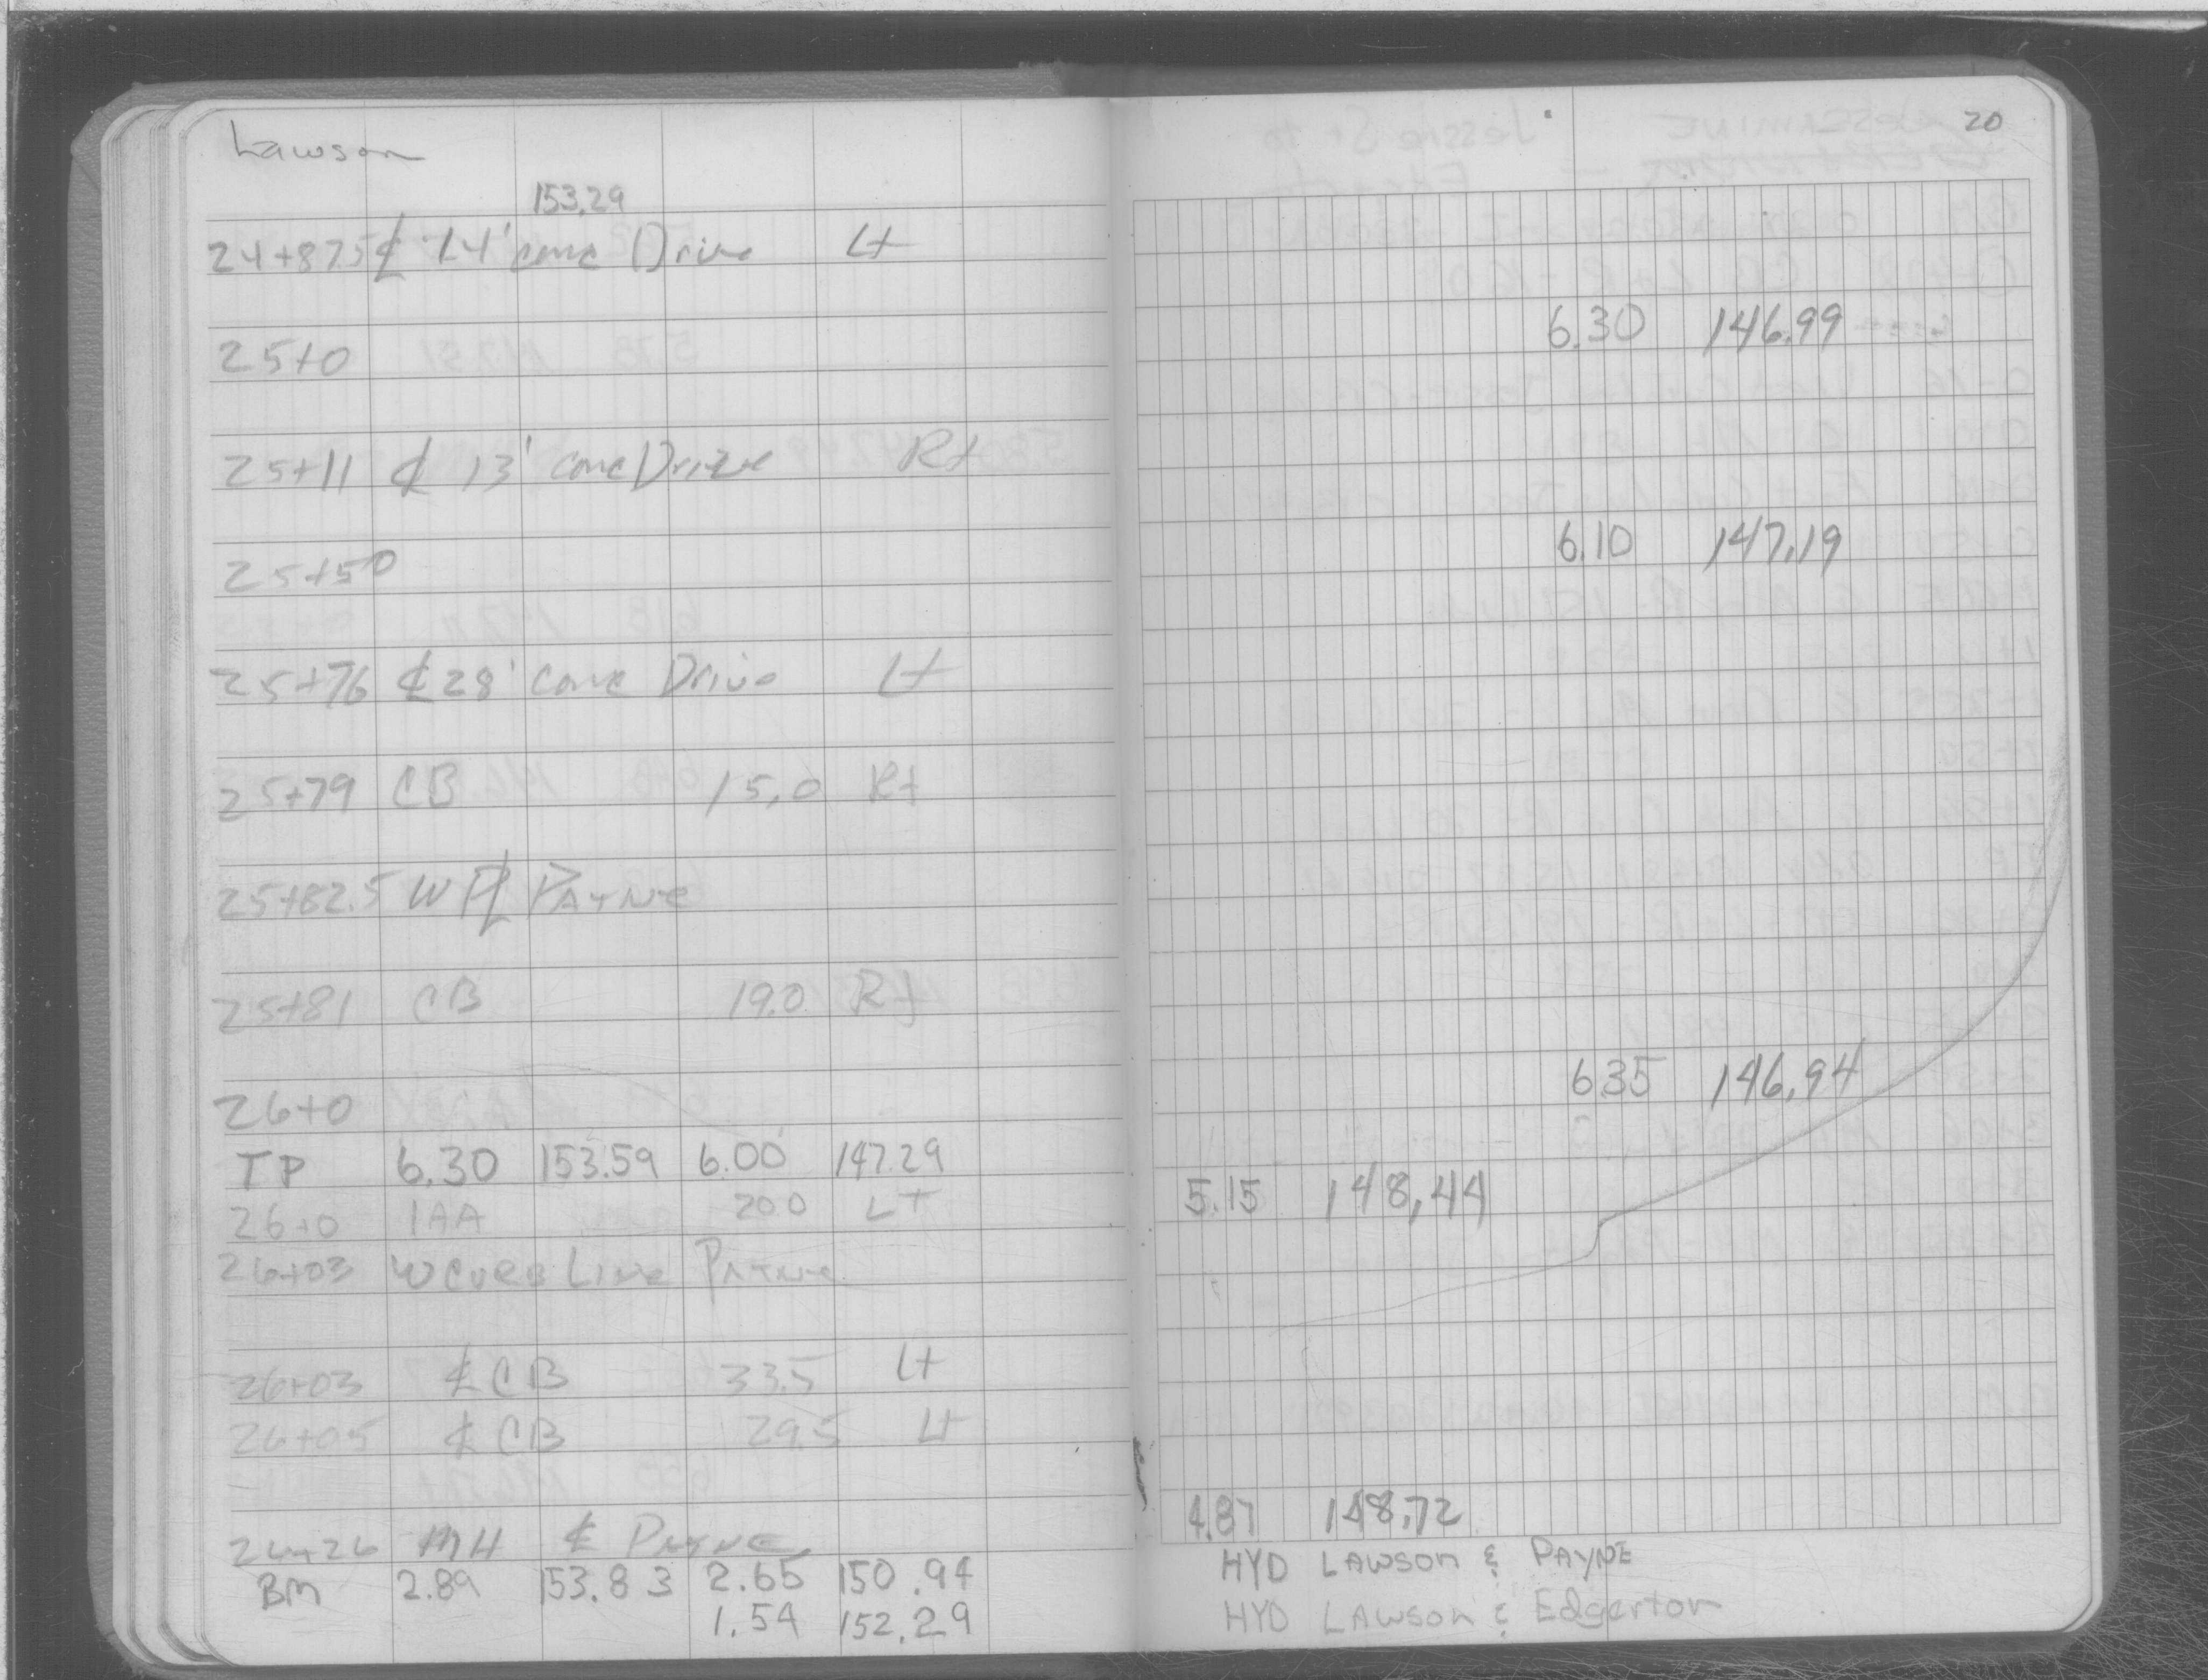 Lawson
20
153.29
24+87.5 ℄ 14' conc Drive Lt
25+0 6.30 146.99
25+11 ℄ 13' conc Drive Rt
25+50 6.10 147.19
25+76 ℄ 28' conc Drive Lt
25+79 CB 15.0 Rt
25+82.5 W PL PAYNE
25+81 CB 19.0 Rt
26+0 6.35 146.94
TP 6.30 153.59 6.00 147.29
26+0 1AA 20.0 LT 5.15 148.44
26+03 W CURB LINE PAYNE
26+03 ℄ CB 33.5 Lt
26+05 ℄ CB 29.5 Lt
26+26 MH ℄ PAYNE 4.87 148.72
BM 2.89 153.83 2.65 150.94 HYD LAWSON & PAYNE
1.54 152.29 HYD LAWSON & Edgerton